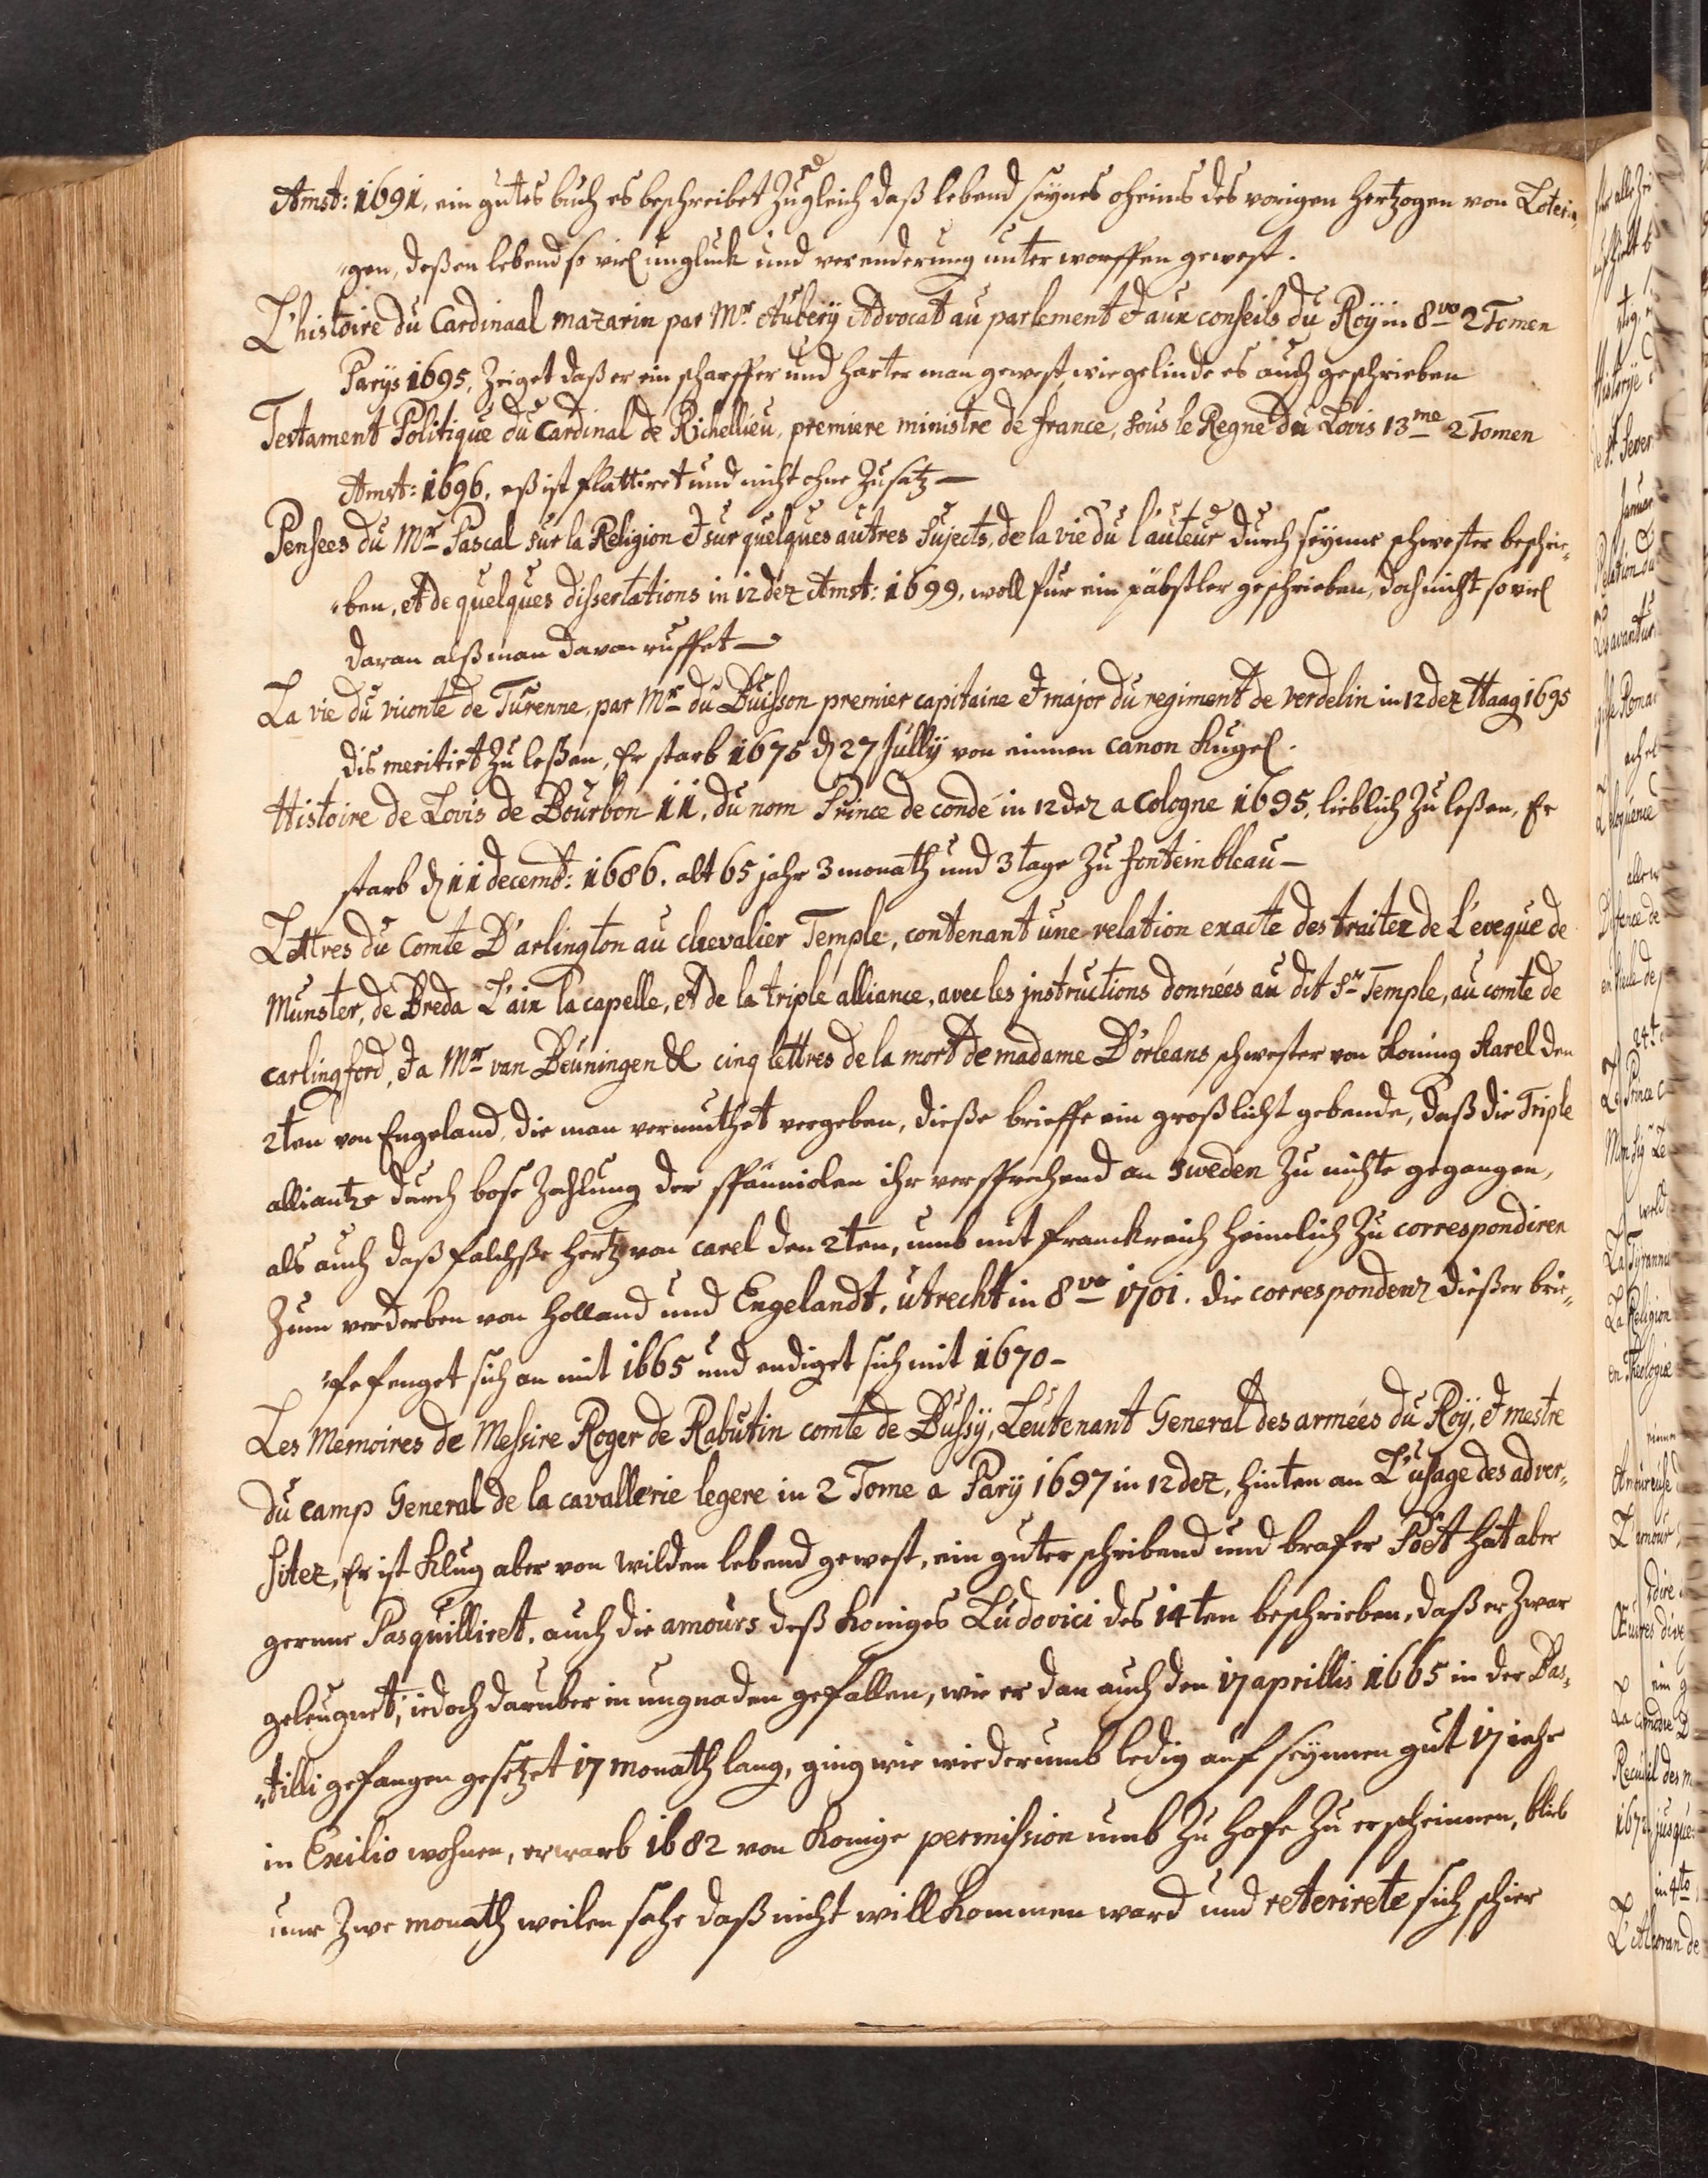 Amst: 1691, ein gutes buch es beschreibet Zugleich daß lebend seynes oheims des vorigen Hertzogen von Loteri„
„gen, deßen lebend so viel ungluck und verenderung unterworffen gewest.
L'histoire du Cardinaal mazarin par Mr Aubery Advocat au parlement & aux conseils du Roÿ in 8vo 2 Tomen
Parÿs 1695, Zeiget daß er ein scharffer und harter man gewest, wie gelinde es auch geschrieben
Testament Politique du Cardinal de Richellieu, premiere ministre de france, sous le Regne du Lovis 13me 2 Tomen
Amst: 1696, eß ist flattiret und nicht ohne Zusatz —
Pensees du Mr Pascal sur la Religion & sur quelques autres Sujects, de la vie du l'auteur durch seynne schwester beschrie„
„ben, et de quelques dissertations in 12dez Amst: 1699, woll fur ein päbstler geschrieben, doch nicht so viel
daran alß man davon ruffet —
La vie du viconte de Turenne, par Mr du Buisson premier capitaine & major du regiment de verdelin in 12dez Haag 1695
dis meritirt Zu leßen, Er starb 1675 d 27 Jullÿ von einnen canon Kugel.
Histoire de Lovis de Bourbon 11. du nom Prince de condé in 12dez a Cologne 1695, lieblich Zu leßen, Er
starb d 11 decemb: 1686. alt 65 jahr 3 monath und 3 tage Zu fonteinbleau —
Lettres du Comte D'arlington au chevalier Temple, contenant une relation exacte des traitez de L'eveque de
Munster, de Breda L'aix la capelle, et de la triple alliance, avec les jnstructions données au dit Sr Temple, au comte de
carlingford, & a Mr van Beuningen &c cinq lettres de la mort de madame D'orleans schwester von Koning Karel den
2ten von Engeland, die man vermuthet vergeben, dieße brieffe ein groß licht gebende, daß die Triple
alliantze durch bose Zahlung der spanniolen ihr versprechend an Sweden Zu nichte gegangen,
als auch daß falchße hertz von carel den 2ten, umb mit franckreich heimlich Zu correspondiren
Zum verderben von Holland und Engelandt, utrecht in 8vo 1701. die correspondenz dießer brie„
„fe fenget sich an mit 1665 und endiget sich mit 1670 –
Les Memoires de Messire Roger de Rabutin comte de Bussÿ, Leutenant General des armées du Roÿ, & mestre
du camp General de la cavallerie legere in 2 Tome a Parÿ 1697 in 12dez, hinten an L'usage des adver„
sitez, Er ist Klug aber von wilden lebend gewest, ein guter schribend und brafer Poët hat aber
gernne Pasquilliret, auch die amours deß Koniges Ludovici des 14ten beschrieben, daß er Zwar
geleugnet, iedoch daruber in ungnaden gefallen, wie er dan auch den 17 aprillis 1665 in der Bas„
„tilli gefangen gesetzet 17 monath lang, ging wie wiederumb ledig auf seynnen gut 17 iahr
in Exilio wohnen, erwarb 1682 von Konige permission umb Zu hofe Zu erscheinnen, blieb
nur Zwe monath weilen sehe daß nicht willkommen ward und reterirete sich schier